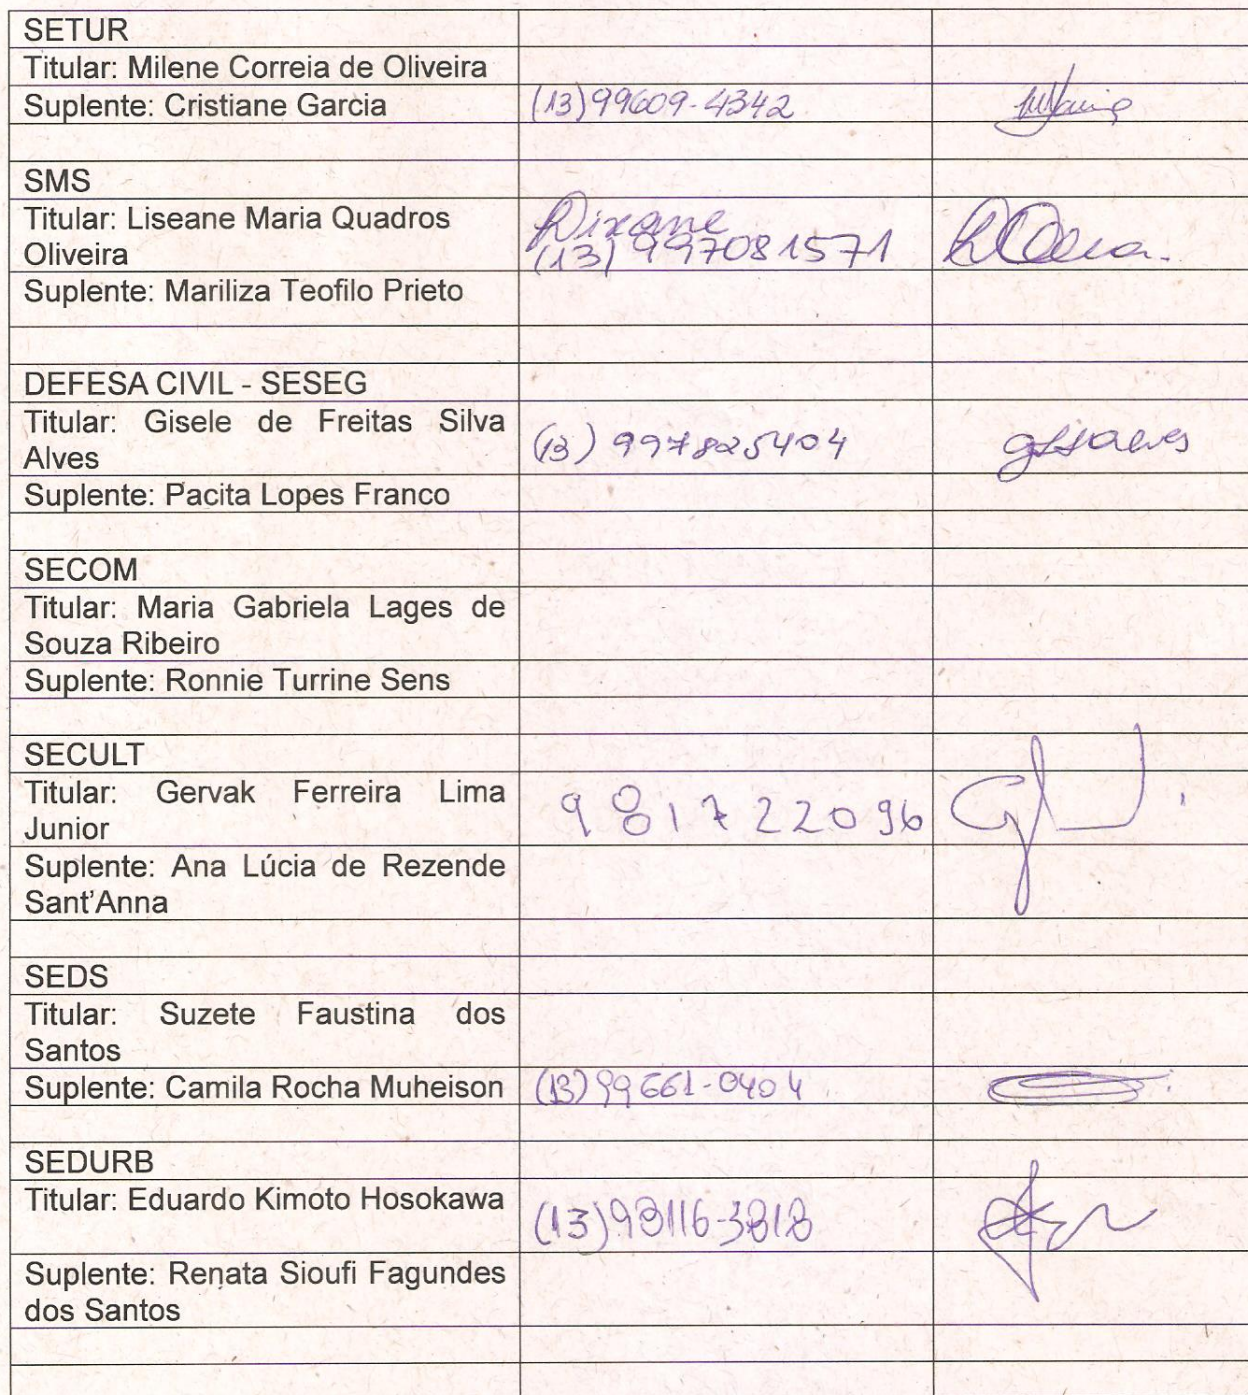 SETUR
Titular: Milene Correia de Oliveira
Suplente: Cristiane Garcia (13)99609-4342
SMS
Titular: Liseane Maria Quadros
Oliveira (13) 997081571
Suplente: Mariliza Teofilo Prieto
DEFESA CIVIL - SESEG
Titular: Gisele de Freitas Silva
Alves (13) 997825404
Suplente: Pacita Lopes Franco
SECOM
Titular: Maria Gabriela Lages de
Souza Ribeiro
Suplente: Ronnie Turrine Sens
SECULT
Titular: Gervak Ferreira Lima
Junior 981722096
Suplente: Ana Lúcia de Rezende
Sant'Anna
SEDS
Titular: Suzete Faustina dos
Santos
Suplente: Camila Rocha Muheison (13)99661-0404
SEDURB
Titular: Eduardo Kimoto Hosokawa (13)98116-3818
Suplente: Renata Sioufi Fagundes
dos Santos